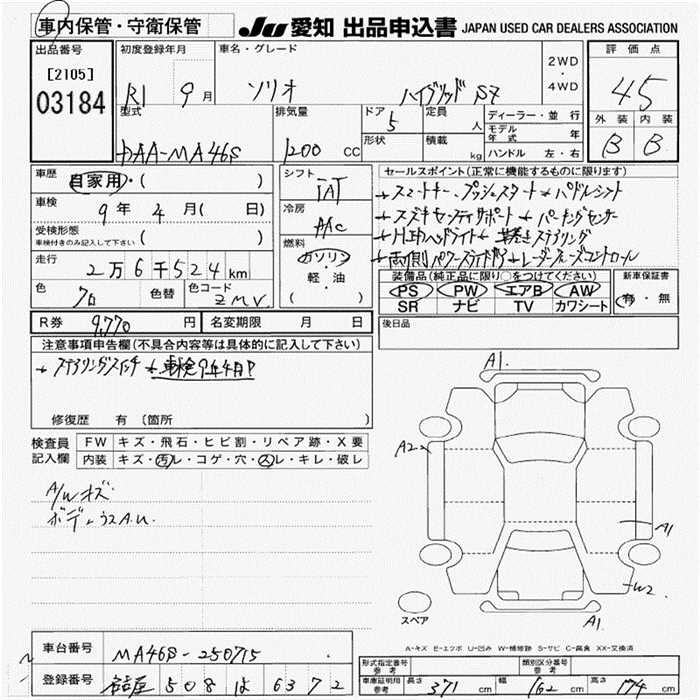 車内保管・守衛保管
JU 愛知 出品申込書 JAPAN USED CAR DEALERS ASSOCIATION
出品番号 初度登録年月 車名・グレード 2WD・4WD 評価点
[2105]
03184 R1 9月 ソリオ ハイブリッド SZ 4.5
型式 排気量 ドア 5 定員 人 ディーラー・並行 外装 内装
形状 積載 kg モデル年式 年
DAA-MA46S 1200 CC ハンドル 左・右 B B
車歴 自家用・( ) シフト IAT セールスポイント(正常に機能するものに限ります)
車検 9年 4月( 日) 冷房 A/C
+スマートキー、プッシュスタート+パドルシフト
受検形態 車検付きのみ記入して下さい ( )
+スズキセーフティサポート+パーキングセンサー
燃料 ガソリン・軽・油 ( )
+LEDヘッドライト+革巻きステアリング
走行 2万6千524km
+両側パワースライドドア+レーダークルーズコントロール
色 クロ 色替 色コード ZMV
装備品(純正品に限り○をつけてください) 新車保証書
PS PW エアB AW 有・無
SR ナビ TV カワシート
R券 9,770円 名変期限 月 日
後日品
注意事項申告欄(不具合内容等は具体的に記入して下さい)
+ステアリングスイッチ +車検9年4月
修復歴 有 〔箇所 〕
検査員記入欄 FW キズ・飛石・ヒビ割・リペア跡・X要
内装 キズ・汚レ・コゲ・穴・スレ・キレ・破レ
A/Wキズ
ボディーウスA.U.
A1
A2
A1
W2
A1
スペア
A-キズ E-エクボ U-凹み W-補修跡 S-サビ C-腐食 XX-交換済
車台番号 MA46S-250715
登録番号 508 は 6372
形式指定番号 参考 類別区分番号 参考
車庫証明用 参考 長さ 371cm 幅 162cm 高さ 174cm